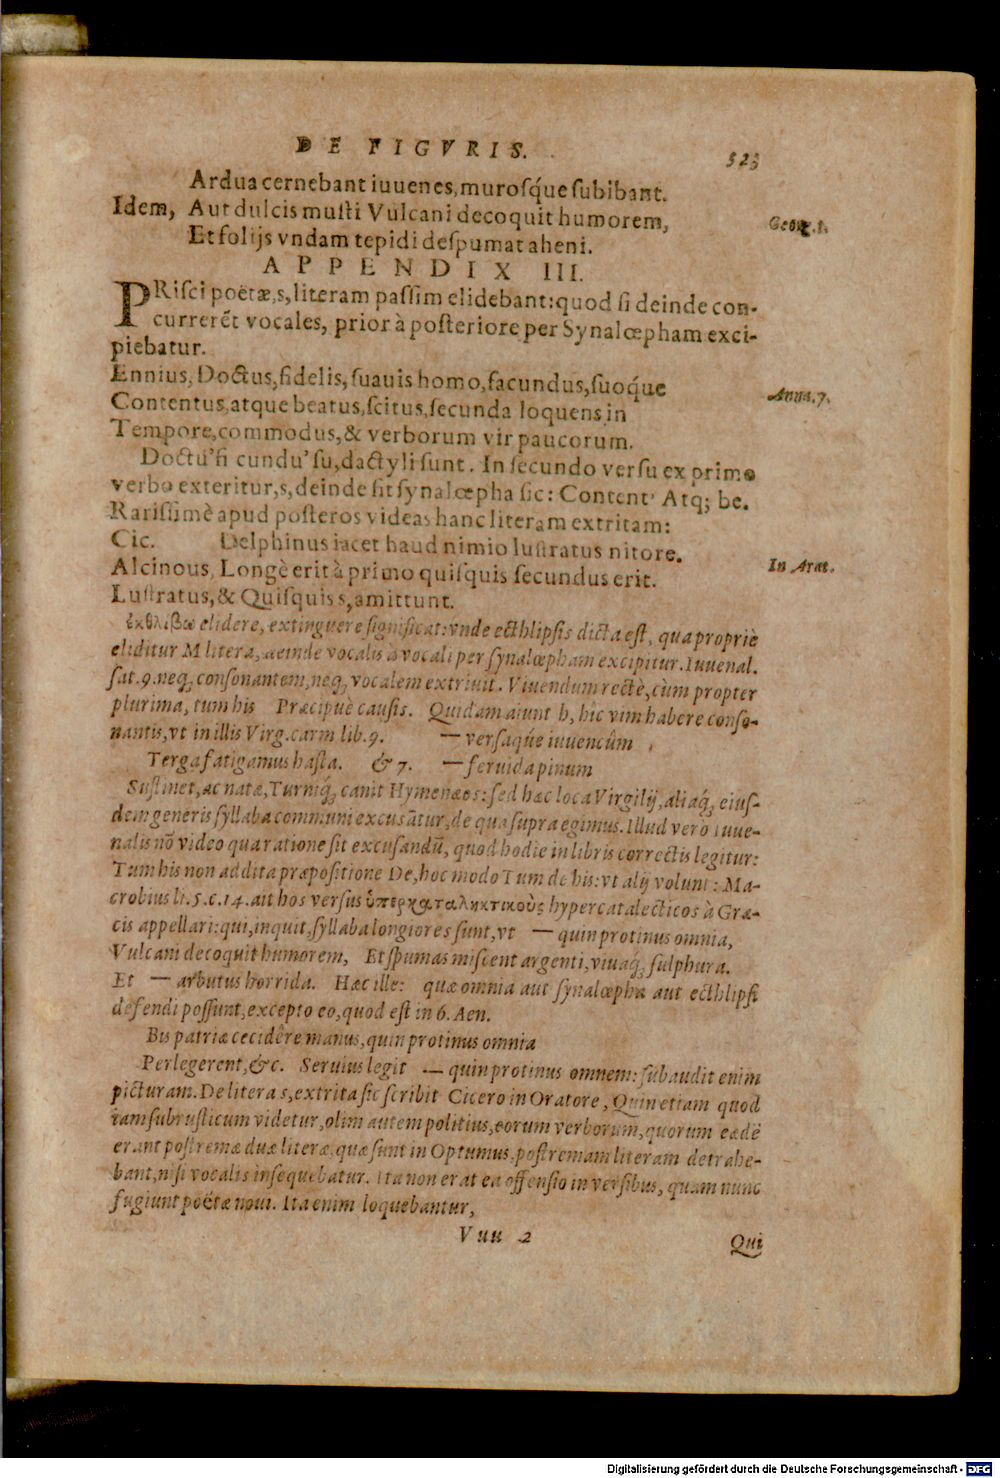 DE FIGVRIS. 523
Ardua cernebant iuuenes, murosq́ue subibant.
Idem, Aut dulcis musti Vulcani decoquit humorem, Georg.1.
Et folijs vndam tepidi despumat aheni.
APPENDIX III.
PRisci poëtæ, s, literam passim elidebant: quod si deinde con-
currerẽt vocales, prior à posteriore per Synalœpham exci-
piebatur.
Ennius, Doctus, fidelis, suauis homo, facundus, suoq́ue Anna.7.
Contentus, atque beatus, scitus, secunda loquens in
Tempore, commodus, & verborum vir paucorum.
Doctu' fi cundu' su, dactyli sunt. In secundo versu ex primo
verbo exteritur, s, deinde fit synalœpha sic: Content' Atq; be.
Rarissimè apud posteros videas hanc literam extritam:
Cic. Delphinus iacet haud nimio lustratus nitore. In Arat.
Alcinous, Longè erit à primo quisquis secundus erit.
Lustratus, & Quisquis s, amittunt.
ἐκθλίβω elidere, extinguere significat: vnde ecthlipsis dicta est, qua propriè
eliditur M litera, deinde vocalis à vocali per synalœpham excipitur. Iuuenal.
sat.9. neq; consonantem, neq; vocalem extriuit. Viuendum rectè, cùm propter
plurima, tum his Præcipuè causis. Quidam aiunt h, hic vim habere conso-
nantis, vt in illis Virg. carm lib.9. — versaq́ue iuuencûm
Terga fatigamus hasta. & 7. — feruida pinum
Sustinet, ac natæ, Turniq́; canit Hymenæos: sed hæc loca Virgilij, aliaq́; eius-
dem generis syllaba communi excusãtur, de qua supra egimus. Illud verò Iuue-
nalis nõ video qua ratione sit excusandũ, quod hodie in libris correctis legitur:
Tum his non addita præpositione De, hoc modo Tum de his: vt alij volunt: Ma-
crobius li.5.c.14. ait hos versus ὑπερκαταληκτικοὺς hypercatalecticos à Græ-
cis appellari: qui, inquit, syllaba longiores sunt, vt — quin protinus omnia,
Vulcani decoquit humorem, Et spumas miscent argenti, viuaq́; sulphura.
Et — arbutus horrida. Hæc ille: quæ omnia aut synalœpha aut ecthlipsi
defendi possunt, excepto eo, quod est in 6. Aen.
Bis patriæ cecidêre manus, quin protinus omnia
Perlegerent, &c. Seruius legit — quin protinus omnem: subaudit enim
picturam. De litera s, extrita sic scribit Cicero in Oratore, Quin etiam quod
iam subrusticum videtur, olim autem politius, eorum verborum, quorum eædẽ
erant postremæ duæ literæ, quæ sunt in Optumus, postremam literam detrahe-
bant, nisi vocalis insequebatur. Ita non erat ea offensio in versibus, quam nunc
fugiunt poëtæ noui. Ita enim loquebantur,
Vuu 2 Qui
Digitalisierung gefördert durch die Deutsche Forschungsgemeinschaft - DFG